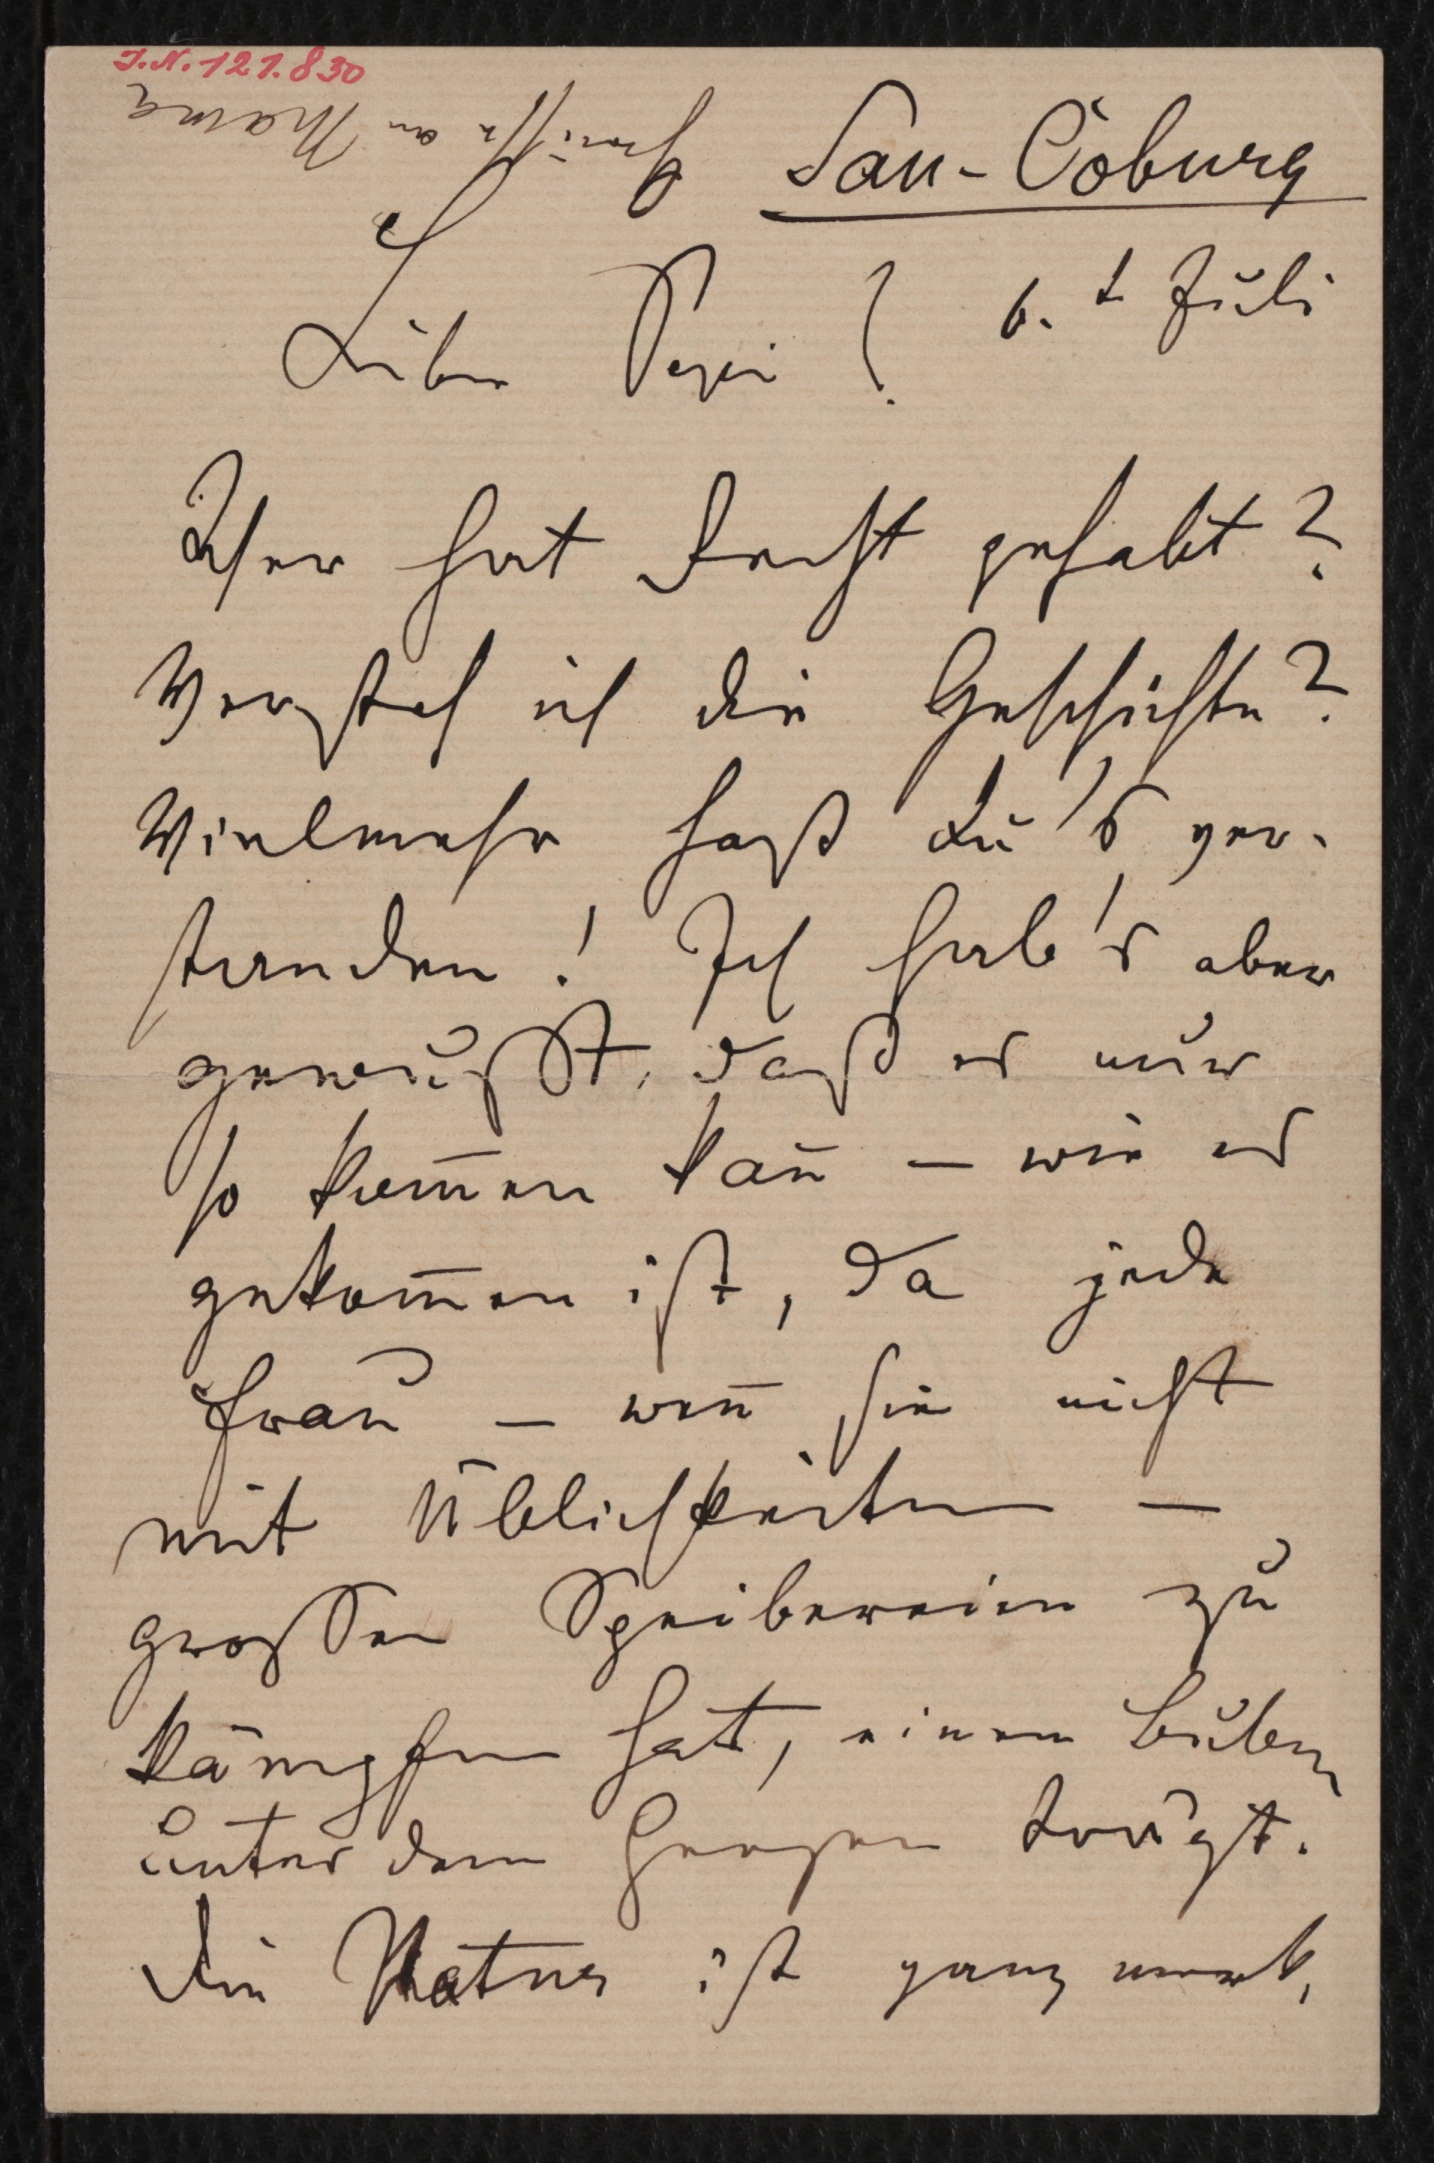 I.N. 121.830
Grüsse an Mama
San-Coburg
6.t Juli
Lieber Pepi!
Wer hat Recht gehabt?
Versteh ich die Geschichte?
Vielmehr hast du's ver-
standen! Ich hab's aber
gewußt, daß es nur
so kom̄en kan̄ – wie es
gekom̄en ist, da jede
Frau – wen̄ sie nicht
mit Üblichkeiten –
großen Speibereien zu
kämpfen hat, einen Buben
unter dem Herzen trägt.
Die Natur ist ganz